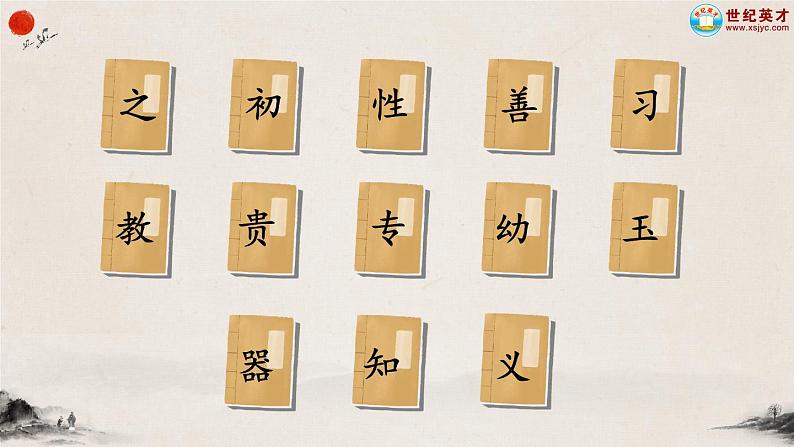 世纪英才
www.xsjyc.com
世纪英才
之 初 性 善 习
教 贵 专 幼 玉
器 知 义